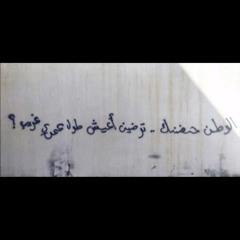 الوطن حضنك - ترضين أعيش طول عمري غريب ؟